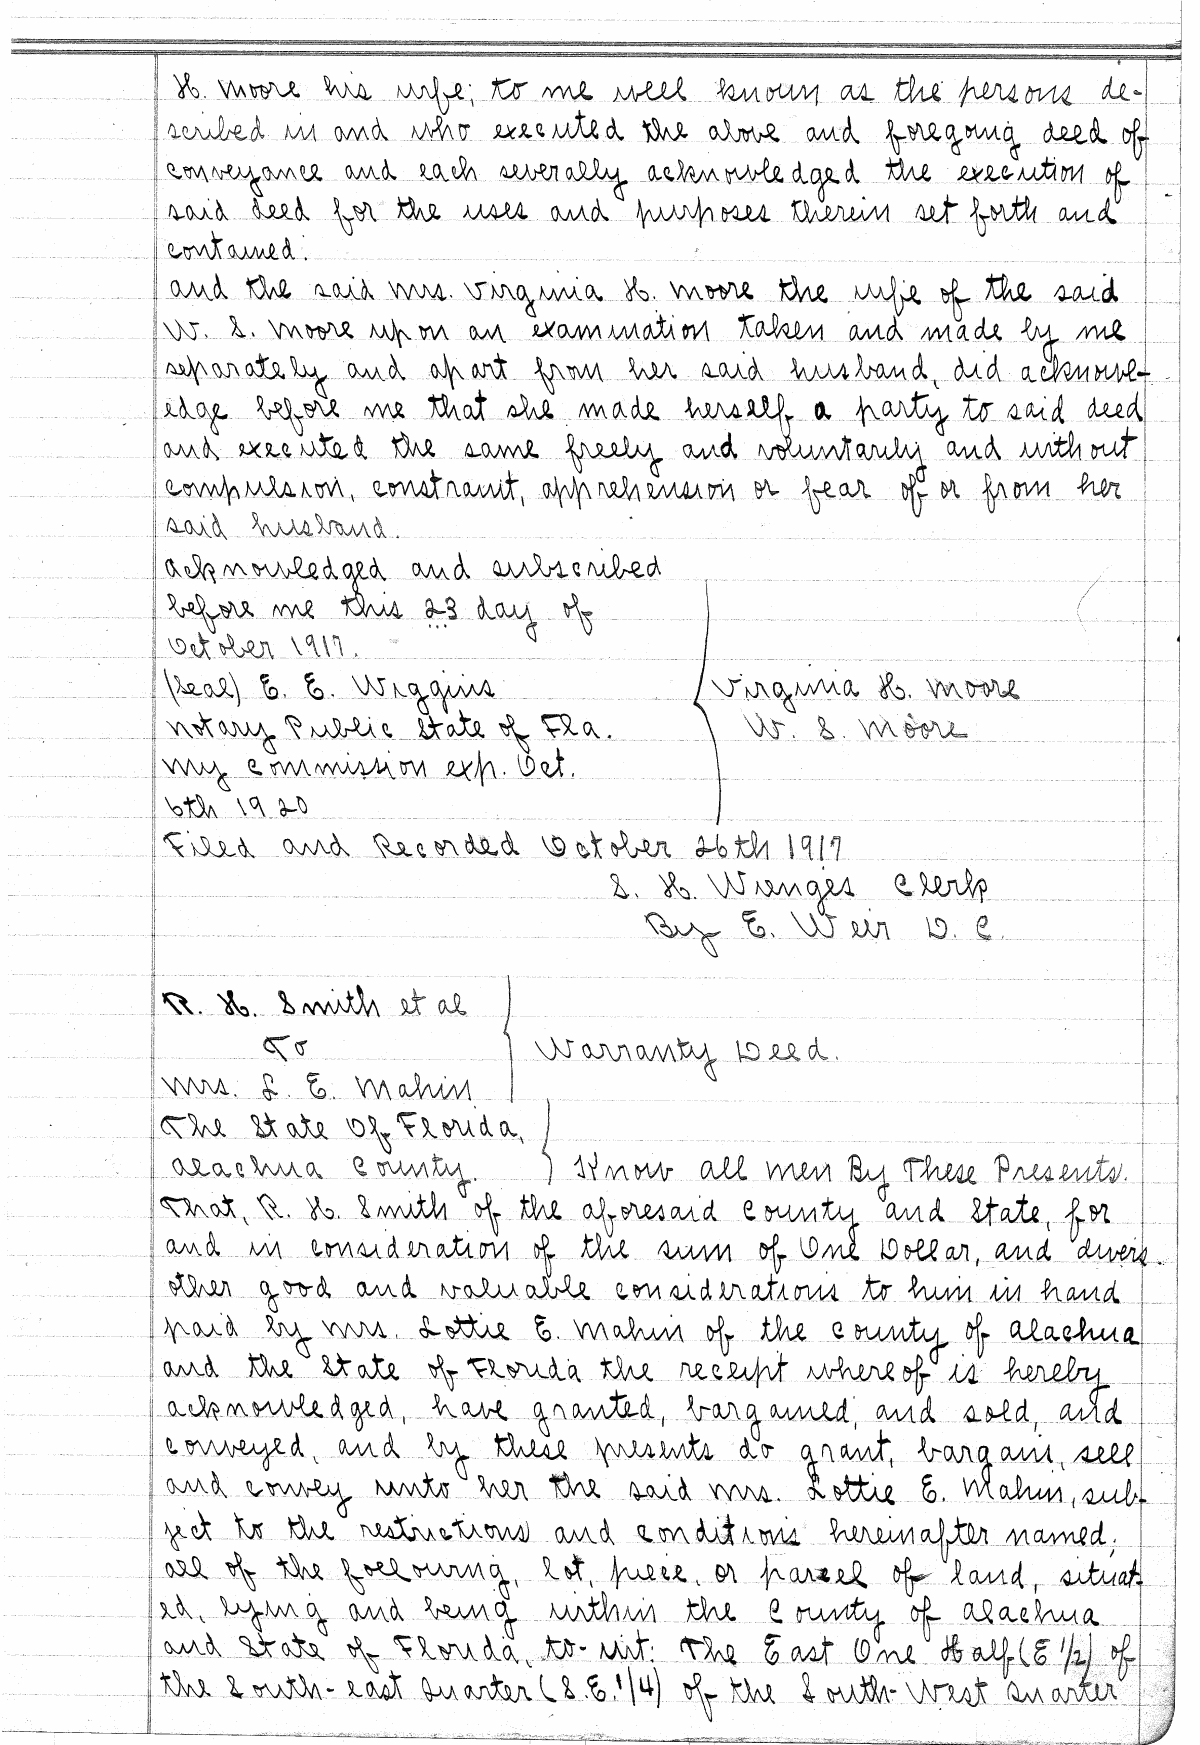 H. Moore his wife; to me well known as the persons de-
scribed in and who executed the above and foregoing deed of
conveyance and each severally acknowledged the execution of
said deed for the uses and purposes therein set forth and
contained.
and the said Mrs. Virginia H. Moore the wife of the said
W. S. Moore upon an examination taken and made by me
separately and apart from her said husband, did acknowl-
edge before me that she made herself a party to said deed
and executed the same freely and voluntarily and without
compulsion, constraint, apprehension or fear of or from her
said husband.
acknowledged and subscribed
before me this 23 day of
October 1917.
(Seal) E. E. Wiggins
Notary Public State of Fla.
My commission exp. Oct.
6th 1920
Virginia H. Moore
W. S. Moore
Filed and Recorded October 26th 1917
S. H. Wienges Clerk
By E. Weir D. C.
R. H. Smith et al
To
Mrs. L. E. Mahin
Warranty Deed.
The State Of Florida,
Alachua County. Know all men By These Presents.
That, R. H. Smith of the aforesaid County and State, for
and in consideration of the sum of One Dollar, and divers
other good and valuable considerations to him in hand
paid by Mrs. Lottie E. Mahin of the County of Alachua
and the State of Florida the receipt whereof is hereby
acknowledged, have granted, bargained, and sold, and
conveyed, and by these presents do grant, bargain, sell
and convey unto her the said Mrs. Lottie E. Mahin, sub-
ject to the restrictions and conditions hereinafter named;
all of the following, lot, piece, or parcel of land, situat-
ed, lying and being within the County of Alachua
and State of Florida, to-wit: The East One Half (E 1/2) of
the South-east Quarter (S.E. 1/4) of the South-West Quarter